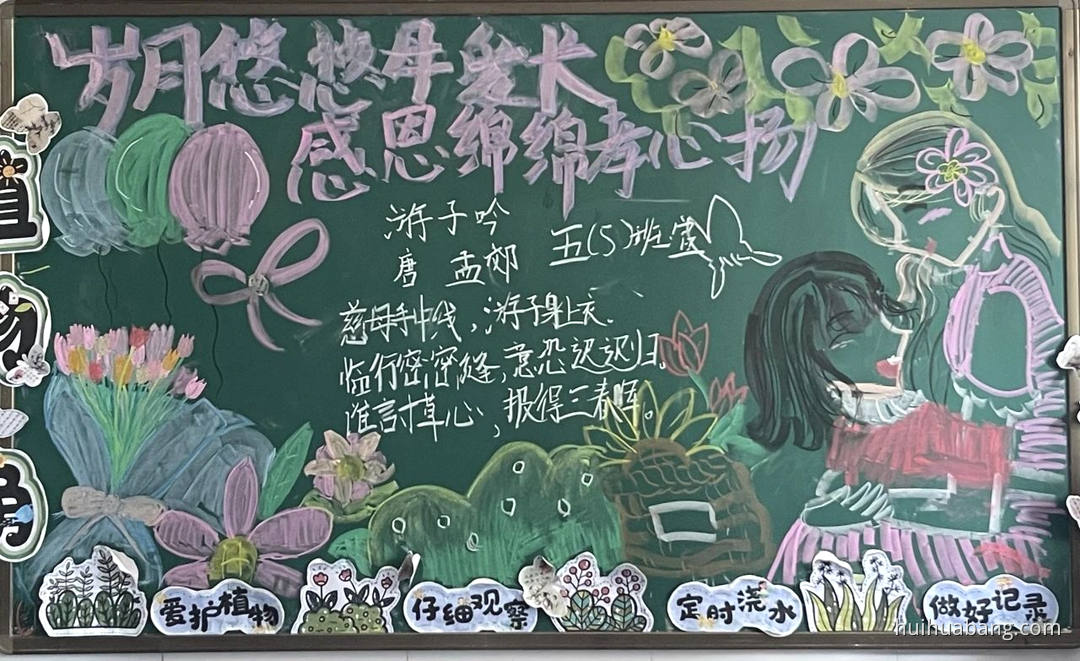 岁月悠悠母爱长
感恩绵绵孝心扬
游子吟
唐 孟郊
五(5)班宣
慈母手中线,游子身上衣.
临行密密缝,意恐迟迟归。
谁言寸草心,报得三春晖。
爱护植物
仔细观察
定时浇水
做好记录
huihuabang.com